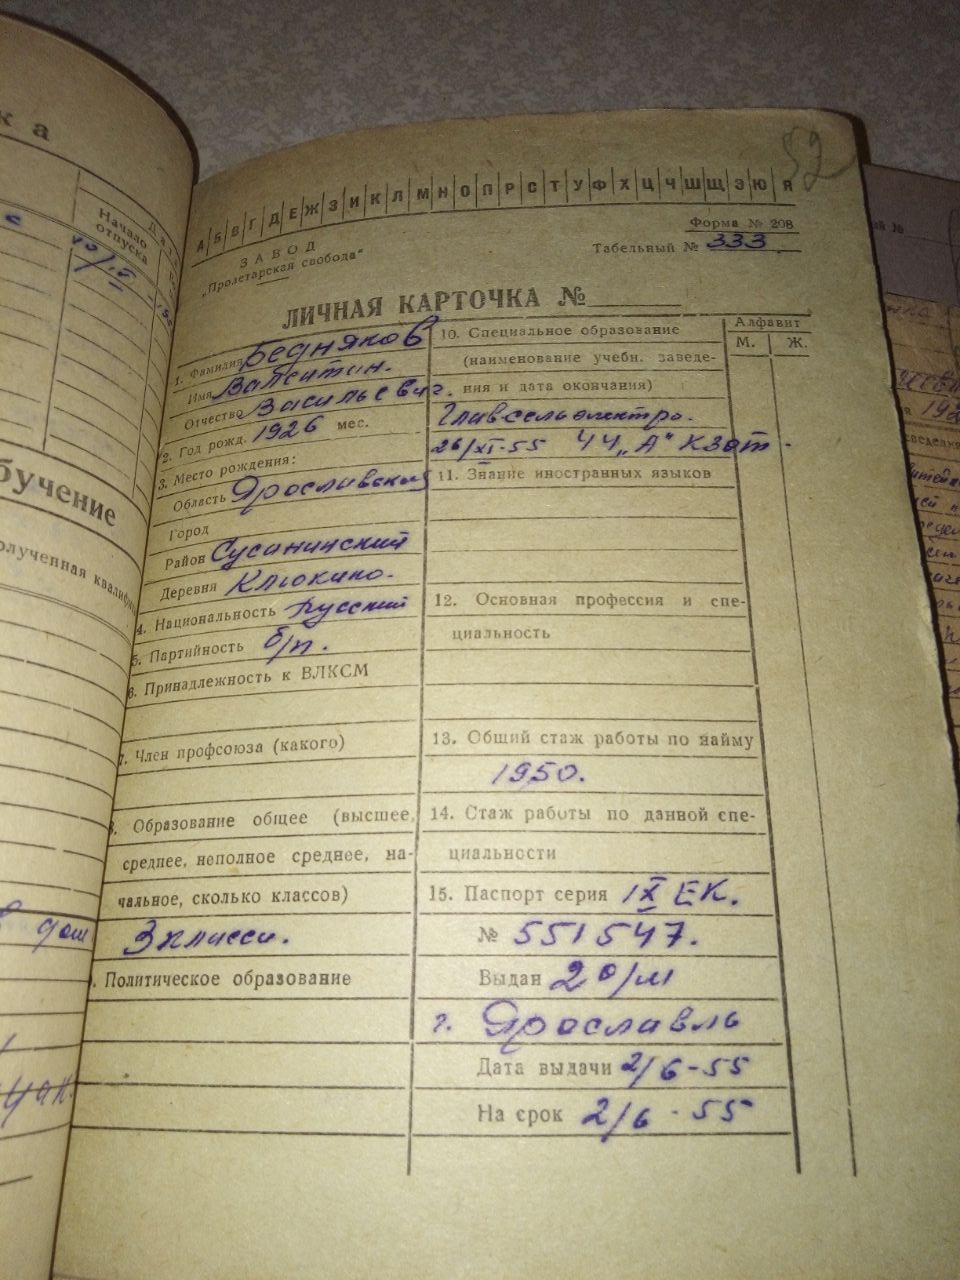 52
А Б В Г Д Е Ж З И К Л М Н О П Р С Т У Ф Х Ц Ч Ш Щ Э Ю Я
Форма № 208
ЗАВОД
„Пролетарская свобода“
Табельный № 333
ЛИЧНАЯ КАРТОЧКА №
1. Фамилия Бедняков
Имя Валентин.
Отчество Васильевич.
2. Год рожд. 1926 мес.
3. Место рождения:
Область Ярославская
Город
Район Сусанинский
Деревня Клюкино.
4. Национальность русский
5. Партийность б/п.
6. Принадлежность к ВЛКСМ
7. Член профсоюза (какого)
8. Образование общее (высшее,
среднее, неполное среднее, на-
чальное, сколько классов)
3 класса.
. Политическое образование
10. Специальное образование
(наименование учебн. заведе-
ния и дата окончания)
Главсельэлектро.
26/XI-55 44 „А“ КЗот.
11. Знание иностранных языков
12. Основная профессия и спе-
циальность
13. Общий стаж работы по найму
1950.
14. Стаж работы по данной спе-
циальности
15. Паспорт серия IX ЕК.
№ 551547.
Выдан 2 о/м
г. Ярославль
Дата выдачи 2/6-55
На срок 2/6-55
Алфавит
М. Ж.
ка
Начало
отпуска
бучение
олученная квалифи